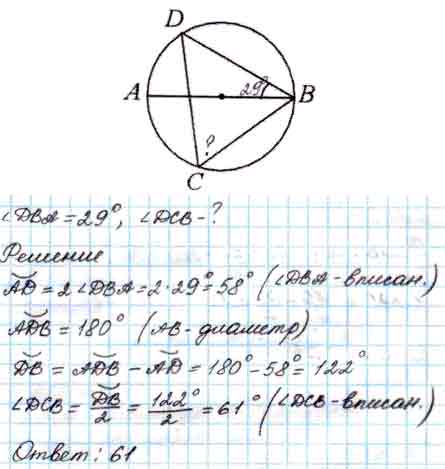 D
A
29°
B
?
C
∠DBA = 29°, ∠DCB - ?
Решение
◡AD = 2∠DBA = 2·29° = 58° (∠DBA - вписан.)
◡ADB = 180° (AB - диаметр)
◡DB = ◡ADB - ◡AD = 180° - 58° = 122°
∠DCB = ◡DB/2 = 122°/2 = 61° (∠DCB - вписан.)
Ответ: 61